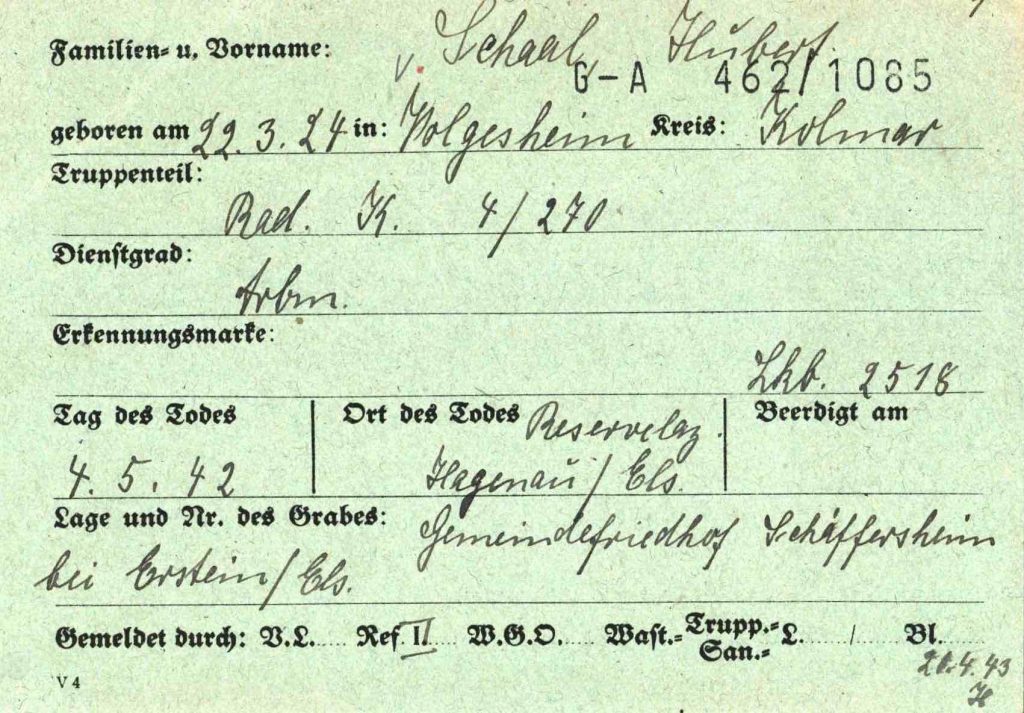 Familien- u. Vorname: v. Schaal, Hubert.
G-A 462/1085
geboren am 22.3.24 in: Wolgesheim Kreis: Kolmar
Truppenteil:
Rad. K. 4/270
Dienstgrad:
Arbm.
Erkennungsmarke:
Zkb. 2518
Tag des Todes Ort des Todes Reservelaz. Beerdigt am
4.5.42 Hagenau/Els.
Lage und Nr. des Grabes: Gemeindefriedhof Schäffersheim
bei Erstein/Els.
Gemeldet durch: V.L. Ref. II W.G.O. Wast.- Trupp.- San.- L. / Bl.
20.4.43
H
V 4